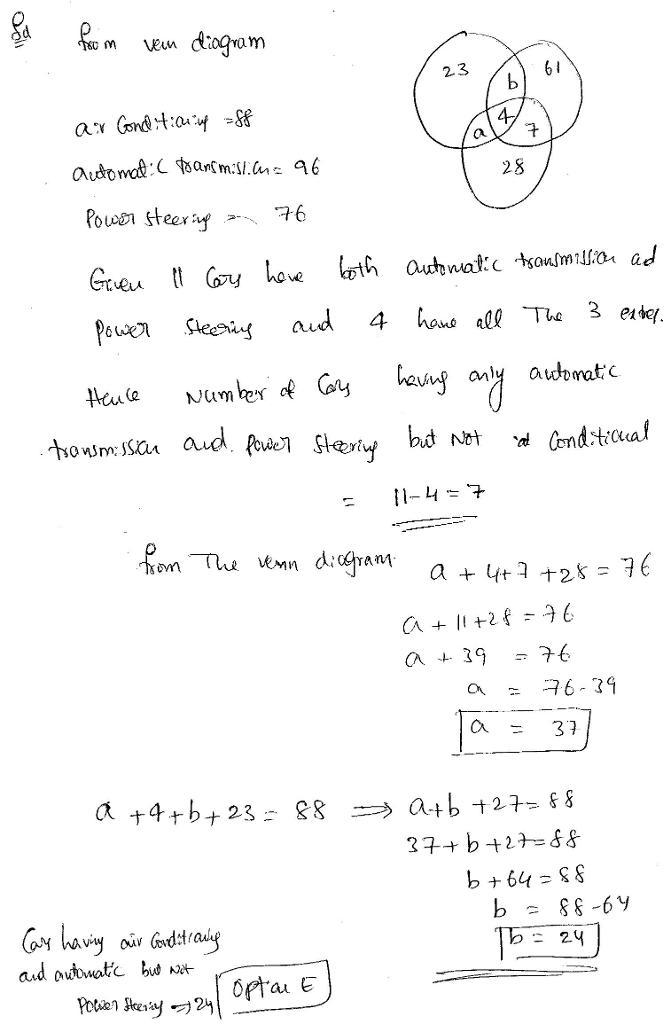 Sol from venn diagram
23 b 61
4
a 7
28
air Conditioning = 88
automatic transmission = 96
Power steering = 76
Given 11 Cars have both automatic transmission ad
power steering and 4 have all The 3 extras.
Hence Number of Cars having only automatic
transmission and power steering but Not Conditional
= 11-4 = 7
from The venn diagram. a + 4+7 +28 = 76
a + 11+28 = 76
a + 39 = 76
a = 76-39
a = 37
a +4+b+23 = 88 ⇒ a+b +27= 88
37+b+27=88
b+64=88
b = 88-64
b = 24
Cars having air Conditioning
and automatic but Not
Power steering ⇒ 24 Option E